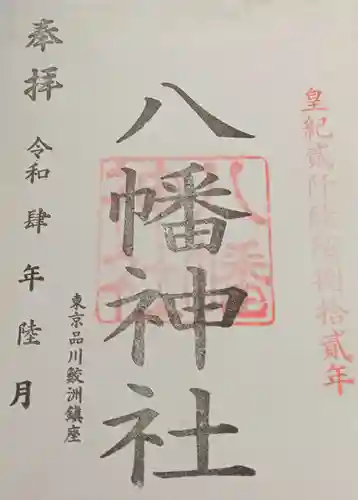 皇紀貳阡陸陌捌拾貳年
八幡神社
東京品川鮫洲鎮座
奉拝
令和肆年陸月